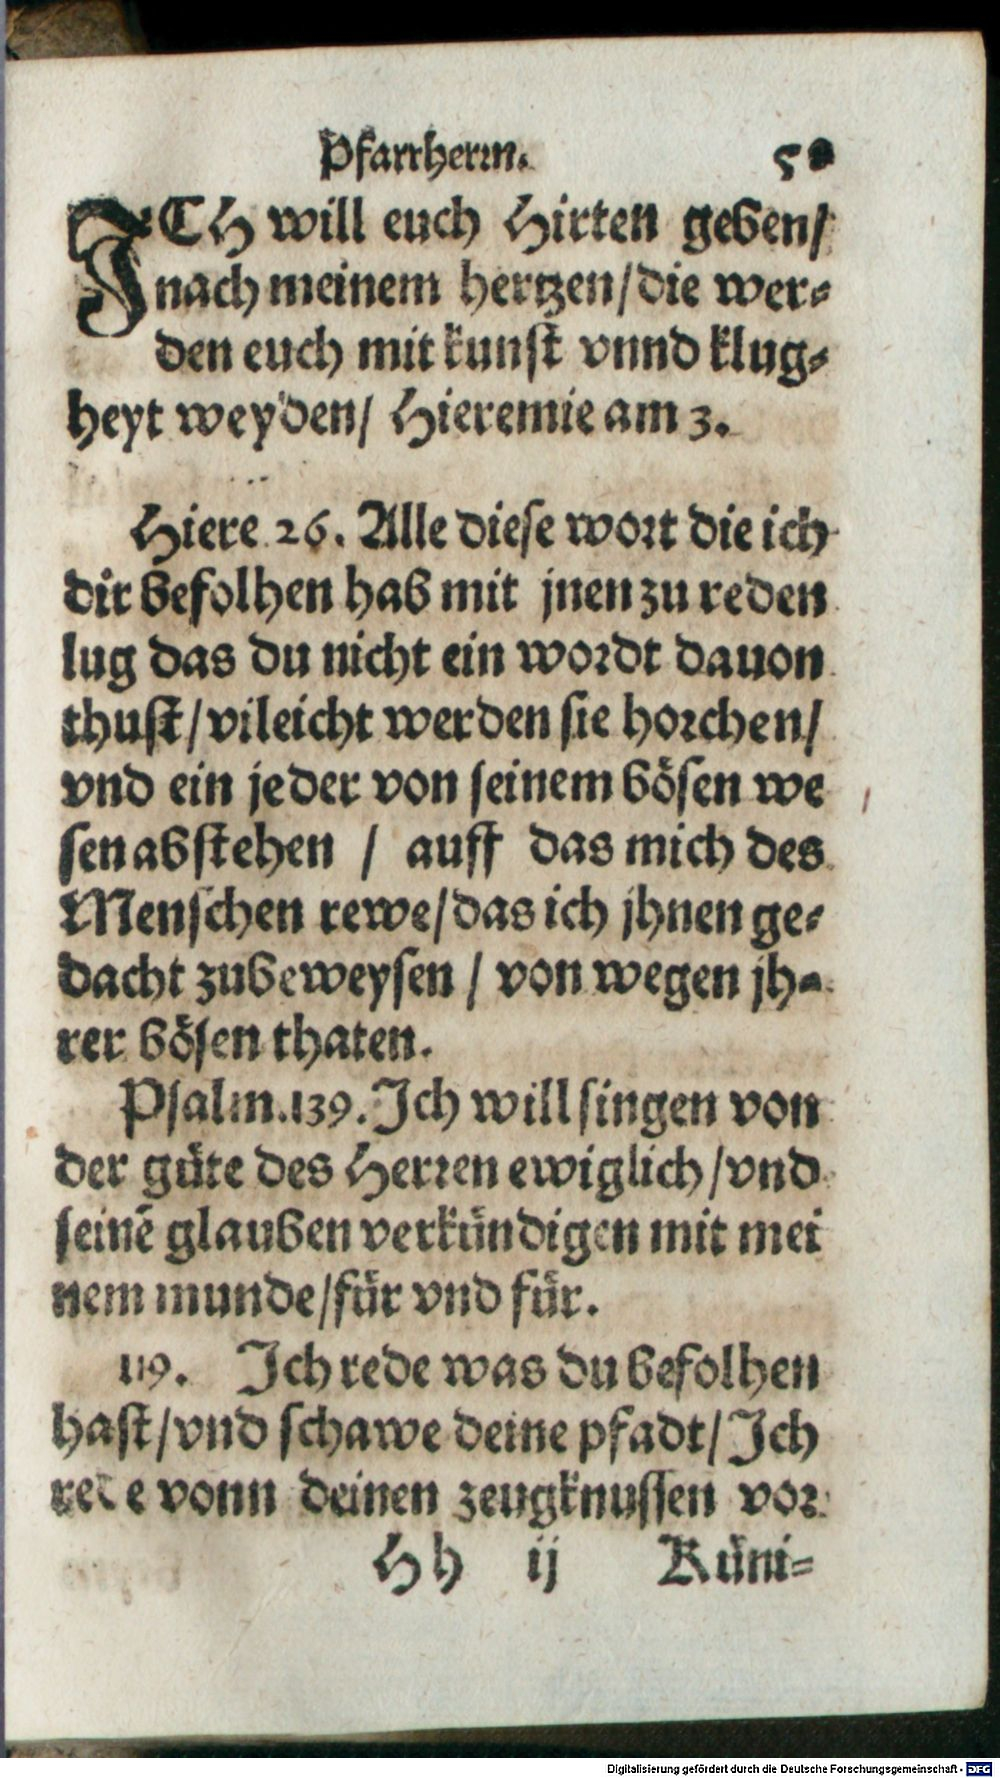 Pfarrherrn.
ICH will euch Hirten geben/
nach meinem hertzen/die wer-
den euch mit kunst vnnd klug-
heyt weyden/ Hieremie am 3.
Hiere 26. Alle diese wort die ich
dir befolhen hab mit jnen zu reden
lug das du nicht ein wordt dauon
thust/vileicht werden sie horchen/
vnd ein jeder von seinem bösen we
sen abstehen / auff das mich des
Menschen rewe/das ich jhnen ge-
dacht zubeweysen / von wegen jh-
rer bösen thaten.
Psalm.139. Ich will singen von
der güte des Herren ewiglich/vnd
seinē glauben verkündigen mit mei
nem munde/für vnd für.
119. Ich rede was du befolhen
hast/vnd schawe deine pfadt/Ich
rede vonn deinen zeugknussen vor
Hh ij Küni-
Digitalisierung gefördert durch die Deutsche Forschungsgemeinschaft - DFG